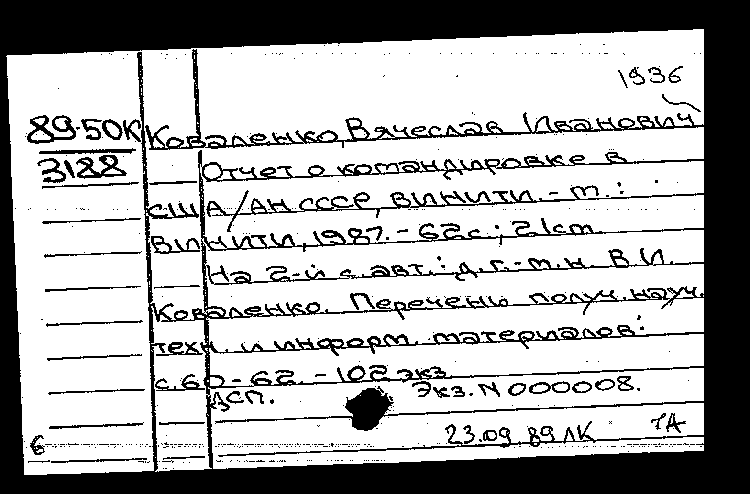 1936
89-50К Коваленко, Вячеслав Иванович
3188 Отчет о командировке в
США/АН СССР, ВИНИТИ. - М.:
ВИНИТИ, 1987. - 62 с.; 21 cm.
На 2-й с. авт.: д.г.-м.н. В.И.
Коваленко. Перечень получ. науч.
техн. и информ. материалов:
с. 60-62. - 102 экз.
ДСП. Экз. N 000008.
23.09.89 ЛК
6